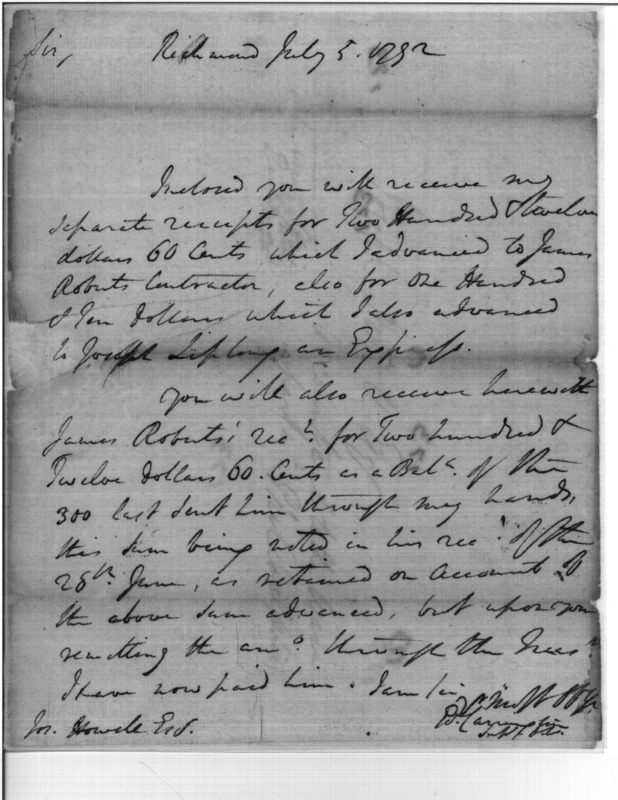 Sir, Richmond July 5. 1792
Inclosed you will receive my
separate receipts for Two Hundred & twelve
dollars 60 Cents which I advanced to James
Roberts Contractor, also for One Hundred
& Ten dollars which I also advanced
to Joseph an Express.
You will also receive herewith
James Roberts' rect. for Two hundred &
Twelve dollars 60. Cents as a Bale. of the
300 last sent him through my hands,
this sum being noted in his rect. of the
28th. June, as retained on account of
the above sum advanced, but upon your
remitting the amo. through the Treasr.
I have now paid him. I am Sir
Yr. Most Ob.
Jos. Howell Esqr. E. Carrington